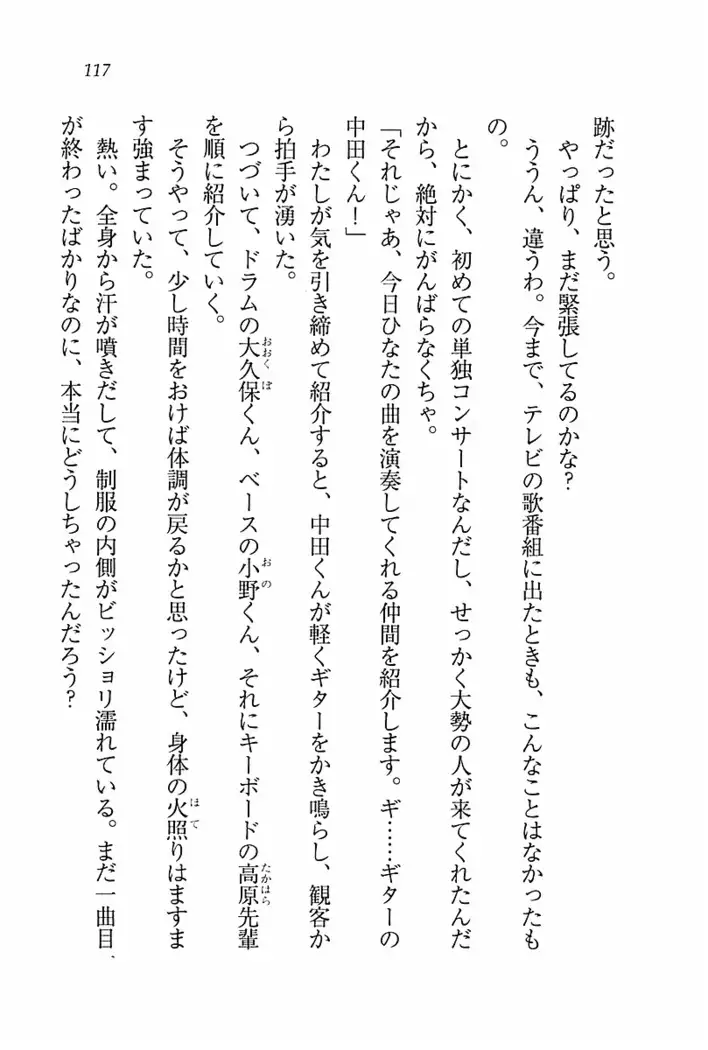 117
跡だったと思う。
やっぱり、まだ緊張してるのかな?
ううん、違うわ。今まで、テレビの歌番組に出たときも、こんなことはなかったも
の。
とにかく、初めての単独コンサートなんだし、せっかく大勢の人が来てくれたんだ
から、絶対にがんばらなくちゃ。
「それじゃあ、今日ひなたの曲を演奏してくれる仲間を紹介します。ギ……ギターの
中田くん!」
わたしが気を引き締めて紹介すると、中田くんが軽くギターをかき鳴らし、観客か
ら拍手が湧いた。
つづいて、ドラムの大久保くん、ベースの小野くん、それにキーボードの高原先輩
を順に紹介していく。
そうやって、少し時間をおけば体調が戻るかと思ったけど、身体の火照りはますま
す強まっていた。
熱い。全身から汗が噴きだして、制服の内側がビッショリ濡れている。まだ一曲目、
が終わったばかりなのに、本当にどうしちゃったんだろう?